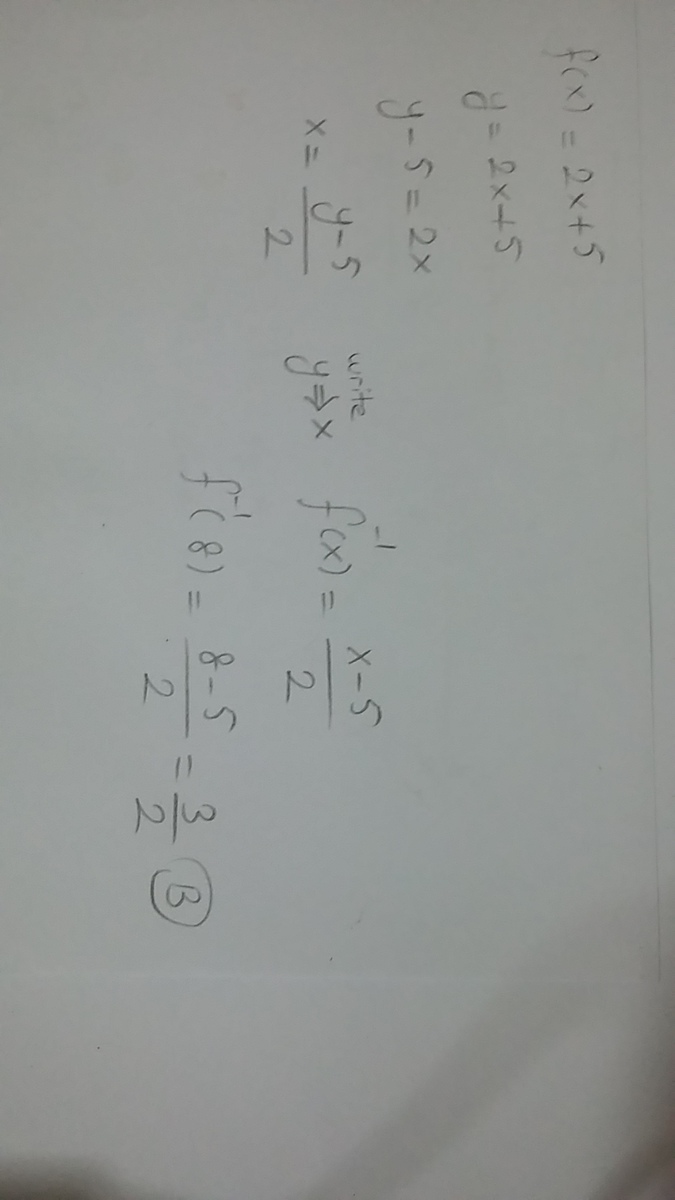 f(x) = 2x+5
y = 2x+5
y-5 = 2x
x = \frac{y-5}{2} write y⇒x f^{-1}(x) = \frac{x-5}{2}
f^{-1}(8) = \frac{8-5}{2} = \frac{3}{2} Ⓑ